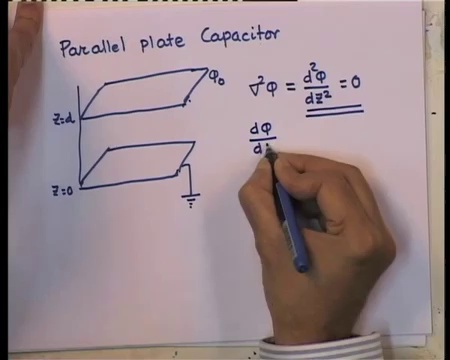 Parallel plate Capacitor
φ₀
∇²φ = d²φ/dz² = 0
z=d
dφ/d
z=0